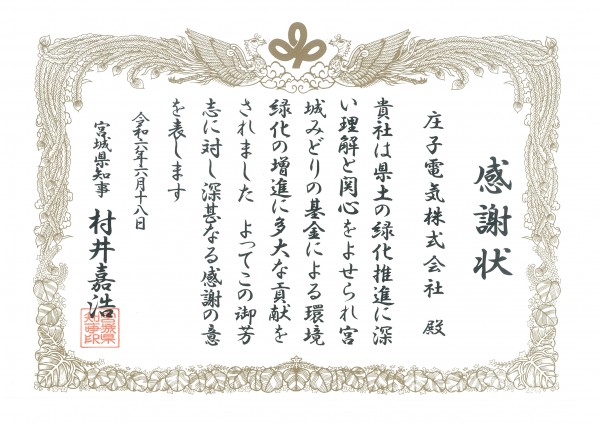 感謝状
庄子電気株式会社 殿
貴社は県土の緑化推進に深
い理解と関心をよせられ宮
城みどりの基金による環境
緑化の増進に多大な貢献を
されました よってこの御芳
志に対し深甚なる感謝の意
を表します
令和六年六月十八日
宮城県知事 村井嘉浩
宮城県
知事印